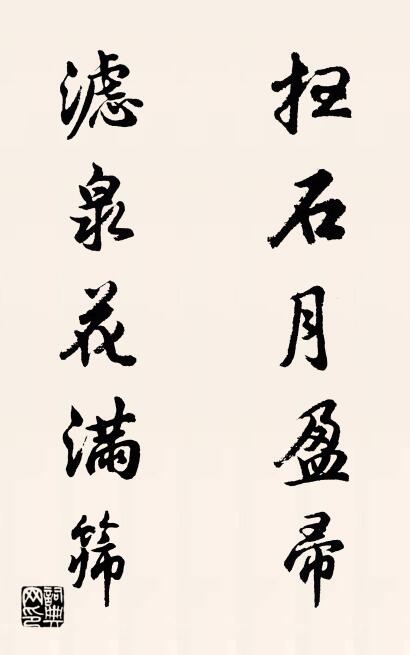 扫石月盈帚
滤泉花满筛
詞典
网印